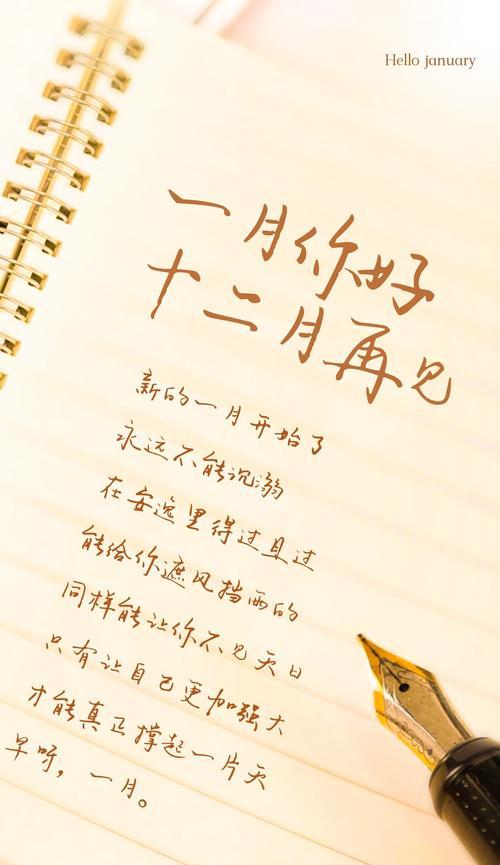 Hello january
一月你好
十二月再见
新的一月开始了
永远不能沉溺
在安逸里得过且过
能给你遮风挡雨的
同样能让你不见天日
只有让自己更加强大
才能真正撑起一片天
早呀，一月。